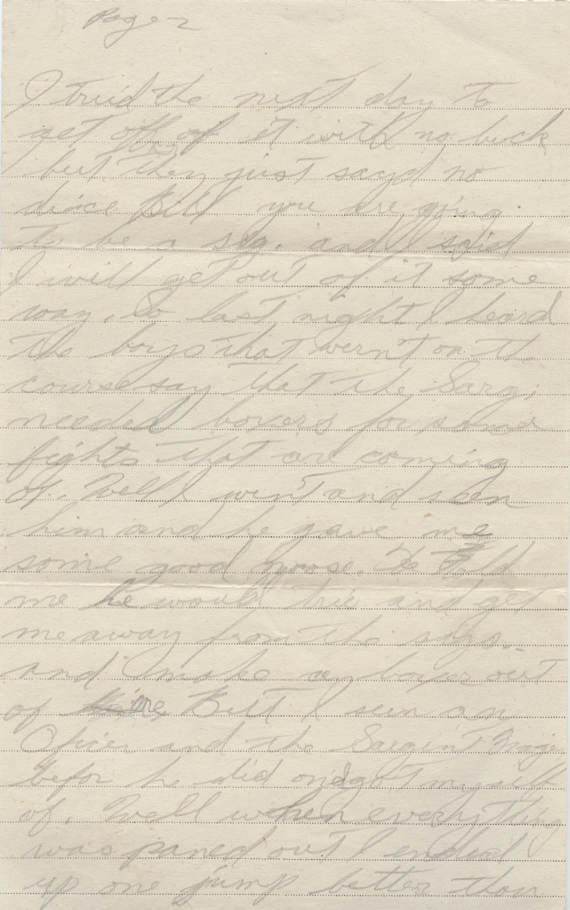 Page 2
I tried the next day to
get off of it with no luck
but they just sayd no
dice Bill you are going
to be a sig. and I said
I will get out of it some
way, So last night I heard
the boys that went on the
course say that the Sarg.
needed boxers for some
fights that are coming
of. Well I went and seen
him and he gave me
some good noose. He told
me he would trie and get
me away from the sigs.
and make a boxer out
of me But I seen an
Oficer and the Sargint Major
befor he did and got myself
of. Well when everything
was paned out I ended
up one jump better than